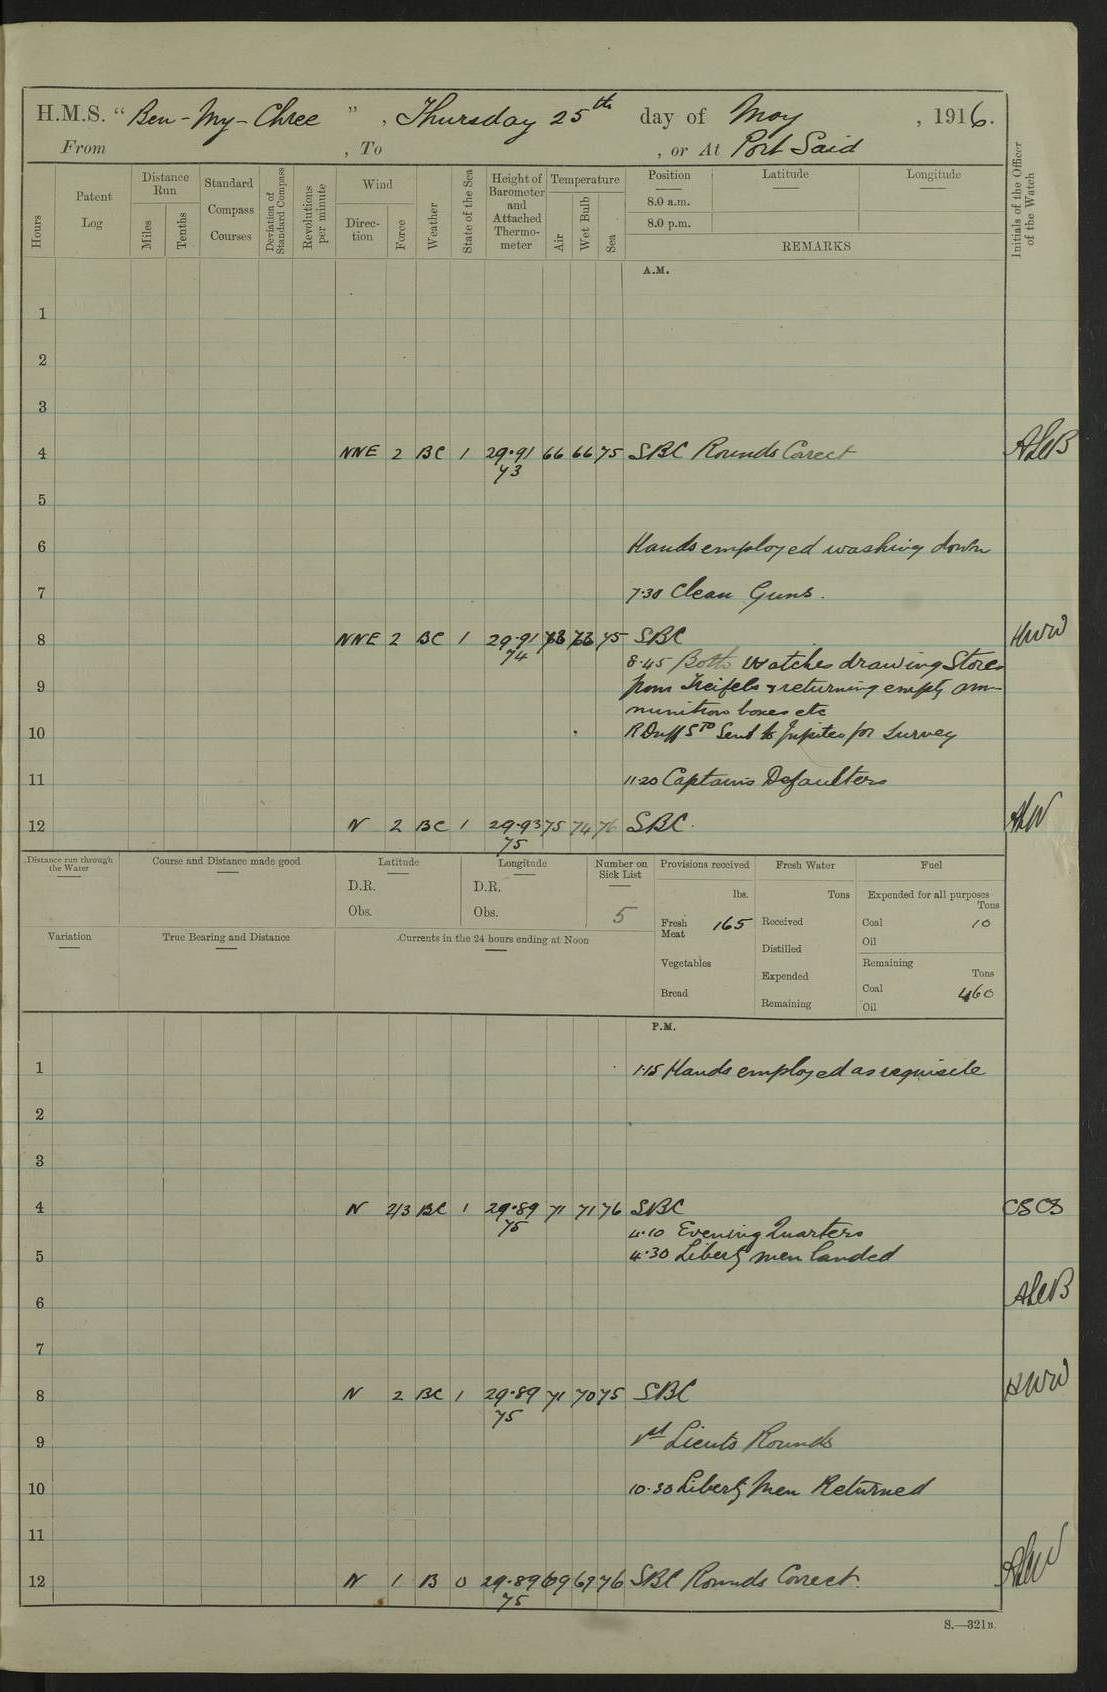 H.M.S. "Ben-My-Chree", Thursday 25th day of May, 1916.
From , To , or At Port Said
Hours
Patent Log
Distance Run
Miles
Tenths
Standard Compass Courses
Deviation of Standard Compass
Revolutions per minute
Wind
Direction
Force
Weather
State of the Sea
Height of Barometer and Attached Thermometer
Temperature
Air
Wet Bulb
Sea
Position
8.0 a.m.
8.0 p.m.
Latitude
Longitude
REMARKS
Initials of the Officer of the Watch
A.M.
1
2
3
4 NNE 2 BC 1 29.91 66 66 75 SBC Rounds Correct ALeB
73
5
6 Hands employed washing down
7 7.30 Clean Guns.
8 NNE 2 BC 1 29.91 75 SBC HWW
74
8.45 Both Watches drawing Stores
9 from & returning empty am-
munition boxes etc
10 R Duff Sto Sent to Jupiter for Survey
11 11.20 Captains Defaulters
12 N 2 BC 1 29.93 75 74 76 SBC.
75
Distance run through the Water
Course and Distance made good
Latitude
D.R.
Obs.
Longitude
D.R.
Obs.
Number on Sick List
5
Provisions received
lbs.
Fresh Meat 165
Vegetables
Bread
Fresh Water
Tons
Received
Distilled
Expended
Remaining
Fuel
Expended for all purposes
Tons
Coal 10
Oil
Remaining
Tons
Coal 460
Oil
Variation
True Bearing and Distance
Currents in the 24 hours ending at Noon
P.M.
1 1.15 Hands employed as requisite
2
3
4 N 2/3 BC 1 29.89 71 71 76 SBC CSCS
75
4.10 Evening Quarters
5 4.30 Liberty men landed
6 ALeB
7
8 N 2 BC 1 29.89 71 70 75 SBC HWW
75
9 1st Lieuts Rounds
10 10.30 Liberty Men Returned
11
12 N 1 B 0 29.89 69 69 76 SBC Rounds Correct.
75
S.—321B.